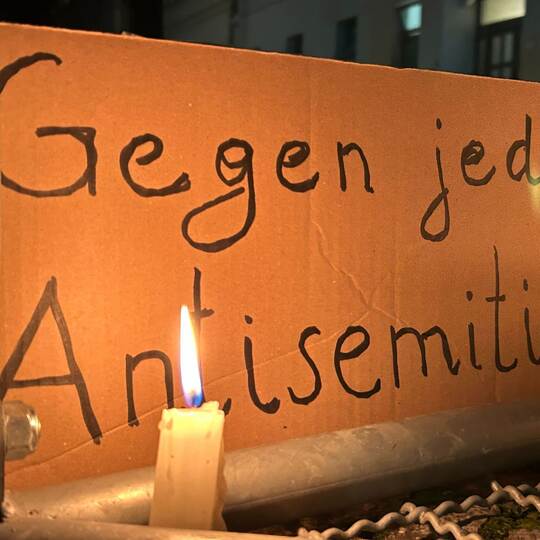 Gegen jed
Antisemiti